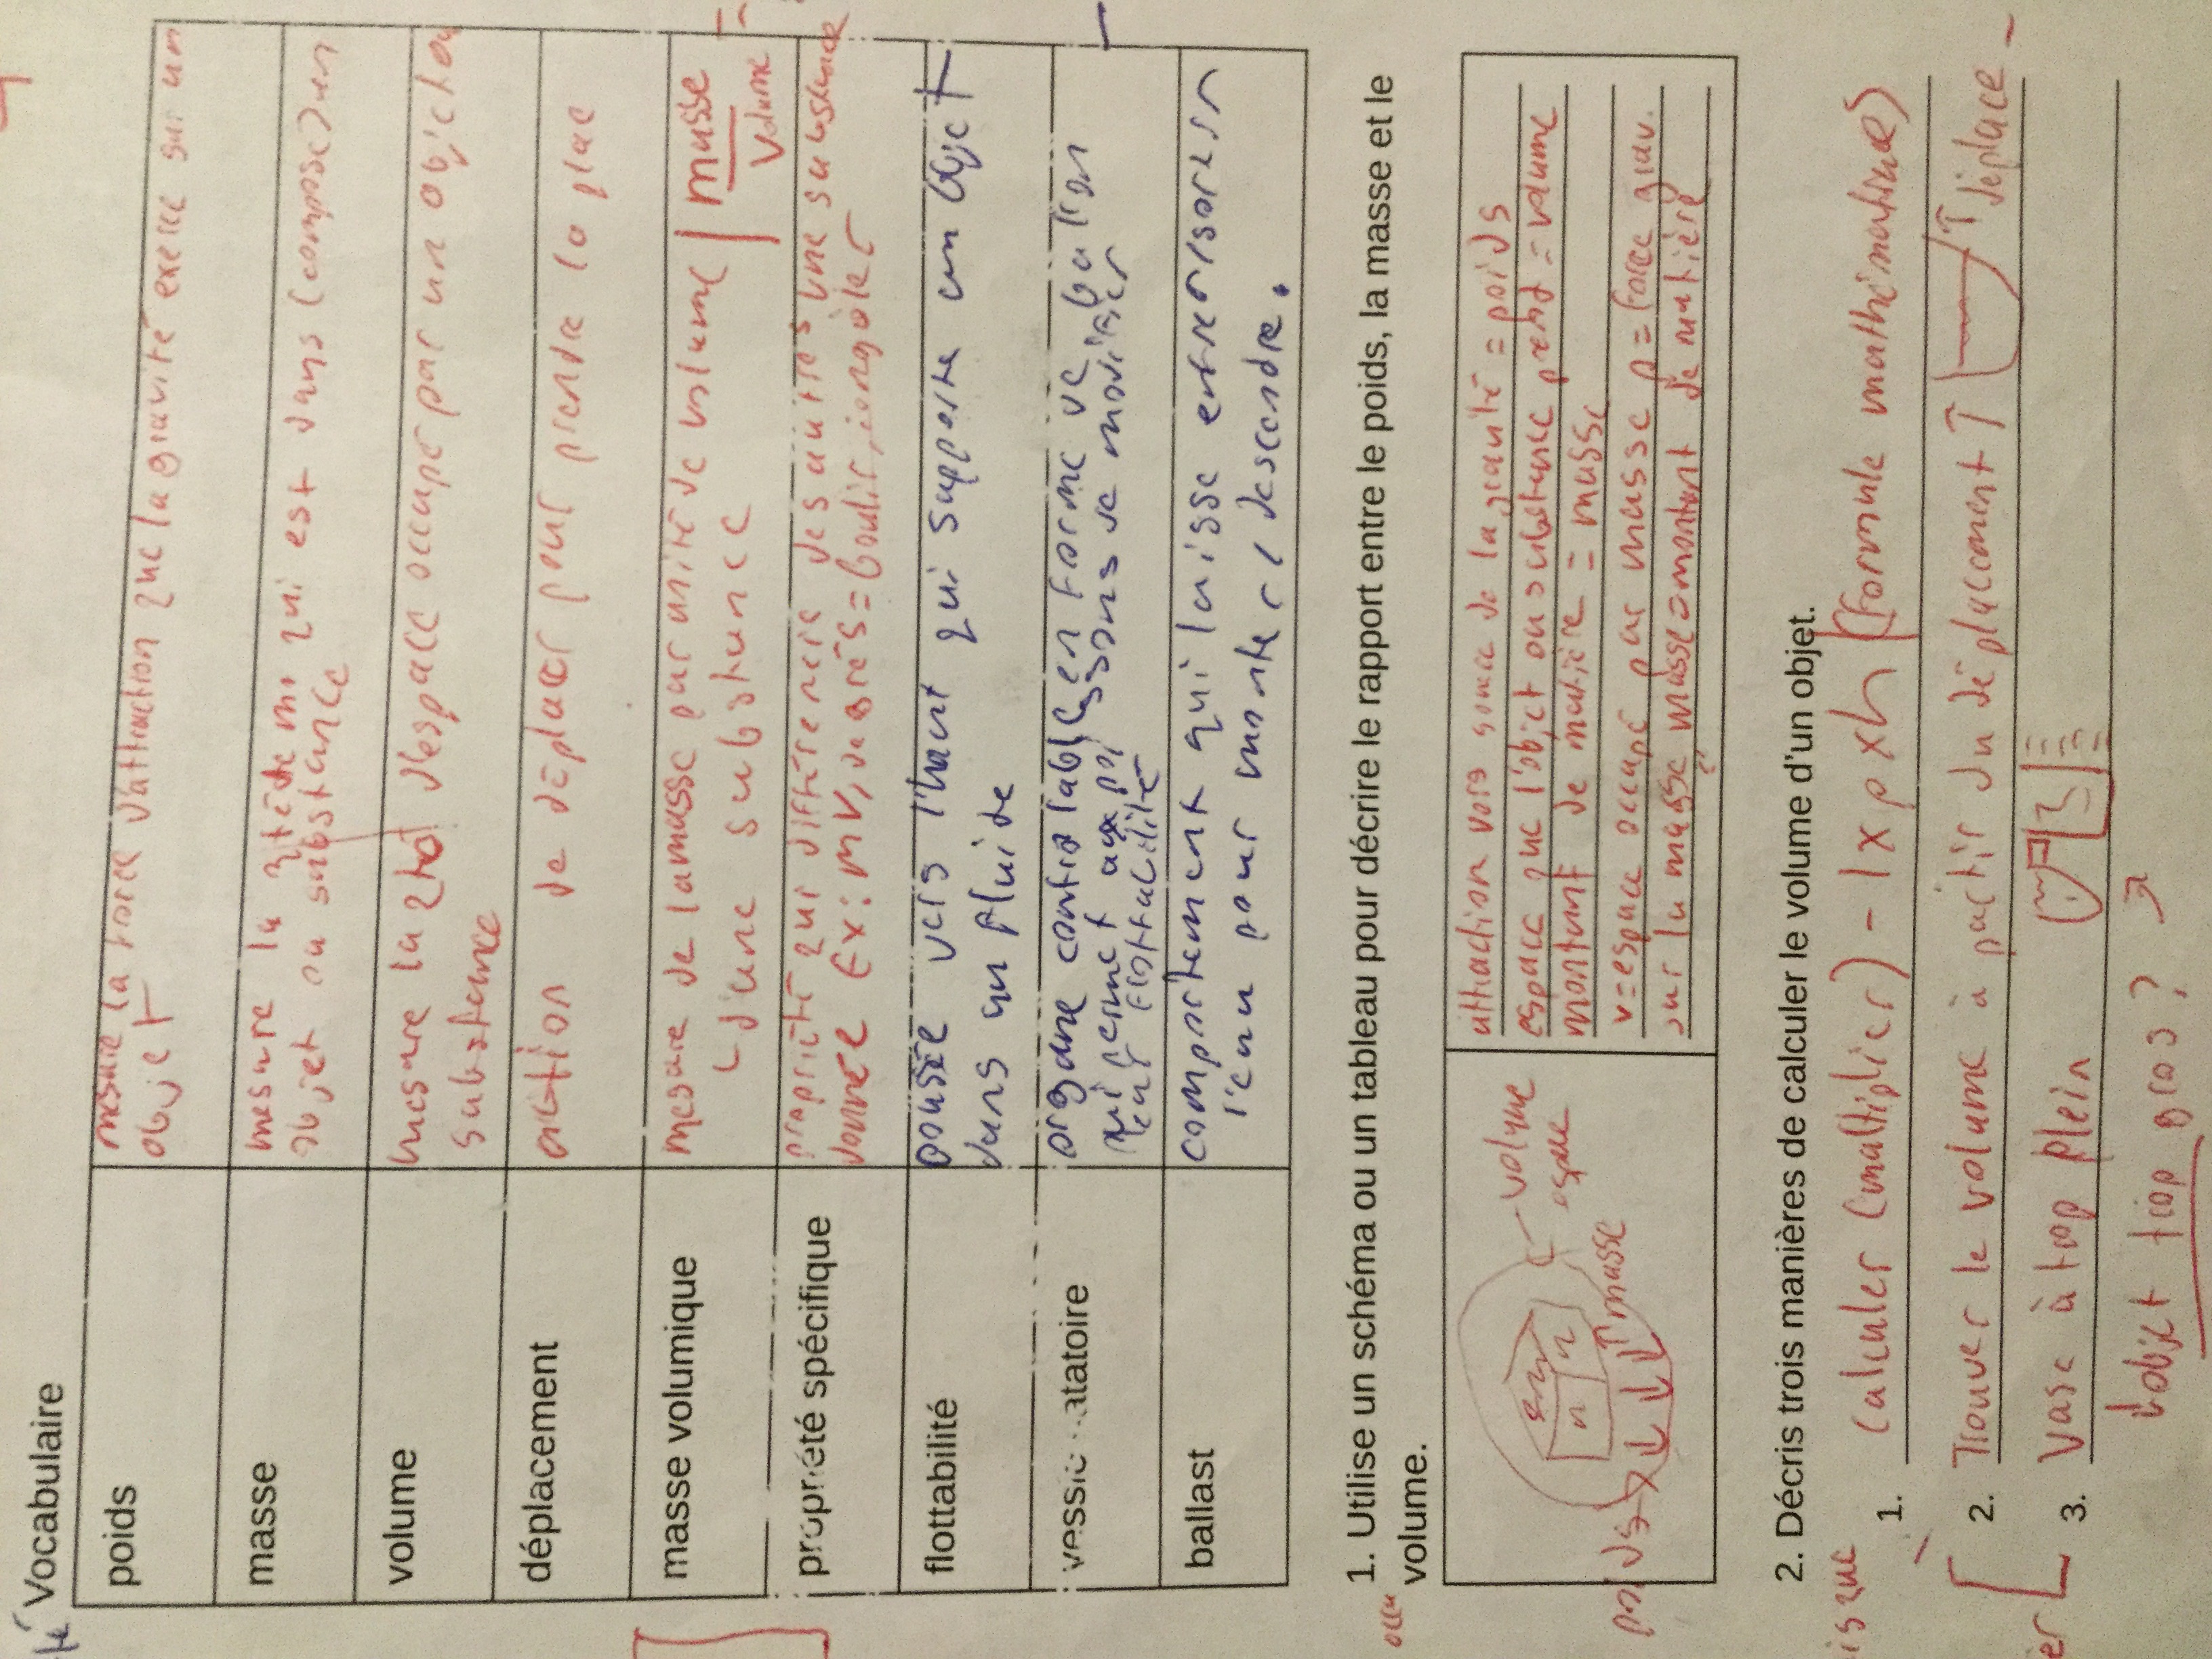 té
Vocabulaire
poids
mesure la force d'attraction que la gravité exerce sur un
objet
masse
mesure la qté de ma qui est dans (compose) un
objet ou substance
volume
mesure la qté d'espace occupé par un objet ou
substance
déplacement
action de déplacer pour prendre la place
masse volumique
mesure de la masse par unité de volume | masse =
↳ d'une substance volume
propriété spécifique
propriété qui différencie des autres une substance
donnée Ex: MV, degrés = boulir, congeler
flottabilité
poussée vers l'haut qui supporte un objet
dans un fluide
vessie natatoire
organe controlable en forme de ballon
qui permet aux poissons de modifier
leur flottabilité
ballast
comportement qui laisse entrer/sortir
l'eau pour monter / descendre.
1. Utilise un schéma ou un tableau pour décrire le rapport entre le poids, la masse et le
occu
volume.
volume
espace
masse
poids
attraction vers source de la gravité = poids
espace que l'objet ou substance prend = volume
montant de matière = masse
v=espace occupé par masse p=force grav.
sur la masse masse=montant de matière
2. Décris trois manières de calculer le volume d'un objet.
1. calculer (multiplier) - l x p x h (formule mathématique)
2. Trouver le volume à partir du déplacement ↑ ↑ déplace
3. vase à trop plein
↓ objet trop gros? ↗